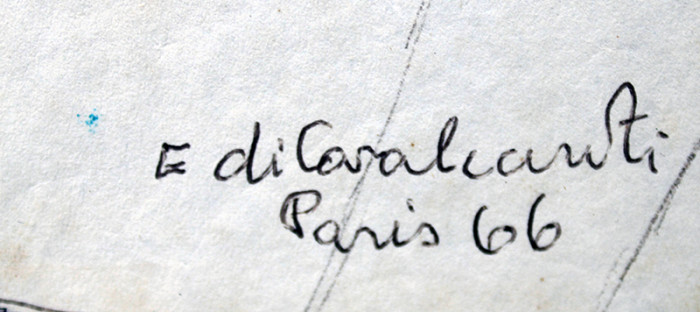 E diCavalcanti
Paris 66